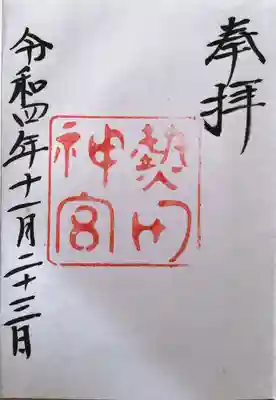 奉拝
熱田
神宮
令和四年十一月二十三日